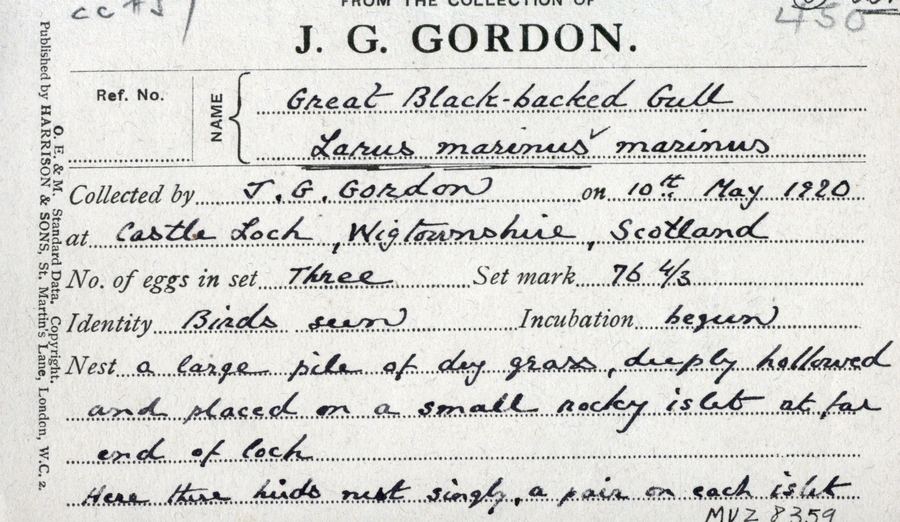 FROM THE COLLECTION OF
450
J. G. GORDON.
Ref. No.
NAME
Great Black-backed Gull
Larus marinus marinus
Collected by J. G. Gordon on 10th May 1920
at Castle Loch, Wigtownshire, Scotland
No. of eggs in set Three Set mark 76 4/3
Identity Birds seen Incubation begun
Nest a large pile of dry grass, deeply hollowed
and placed on a small rocky islet at far
end of loch
Here these birds nest singly, a pair on each islet
MVZ 8359
O. E. & M. Standard Data. Copyright.
Published by HARRISON & SONS, St. Martin's Lane, London, W.C. 2.